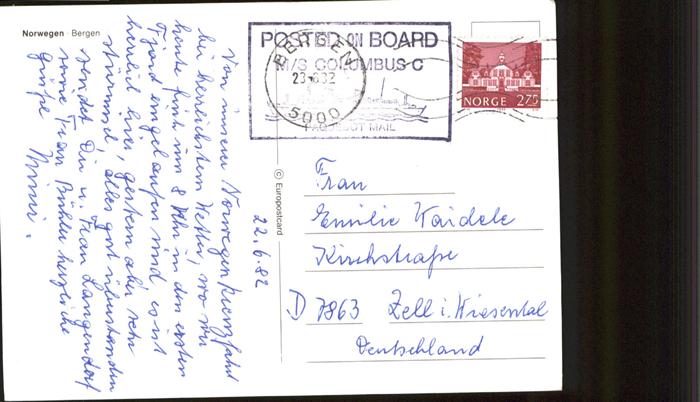 Norwegen · Bergen
Von unserer Norwegenkreuzfahrt
bei herrlichstem Wetter, wo wir
heute früh um 8 Uhr in den ersten
Fjord eingelaufen sind es ist
herrlich hier, gestern aber sehr
stürmisch, alles gut überstanden
sendet Dir u. Frau Langendorf
sowie Frau Bühler herzliche
Grüße
22.6.82
© Europostcard
POSTED ON BOARD
M/S COLUMBUS-C
PAQUEBOT MAIL
BERGEN
5000
NORGE 275
Frau
Emilie Kaidele
Kirchstraße
D 7863 Zell i. Wiesental
Deutschland